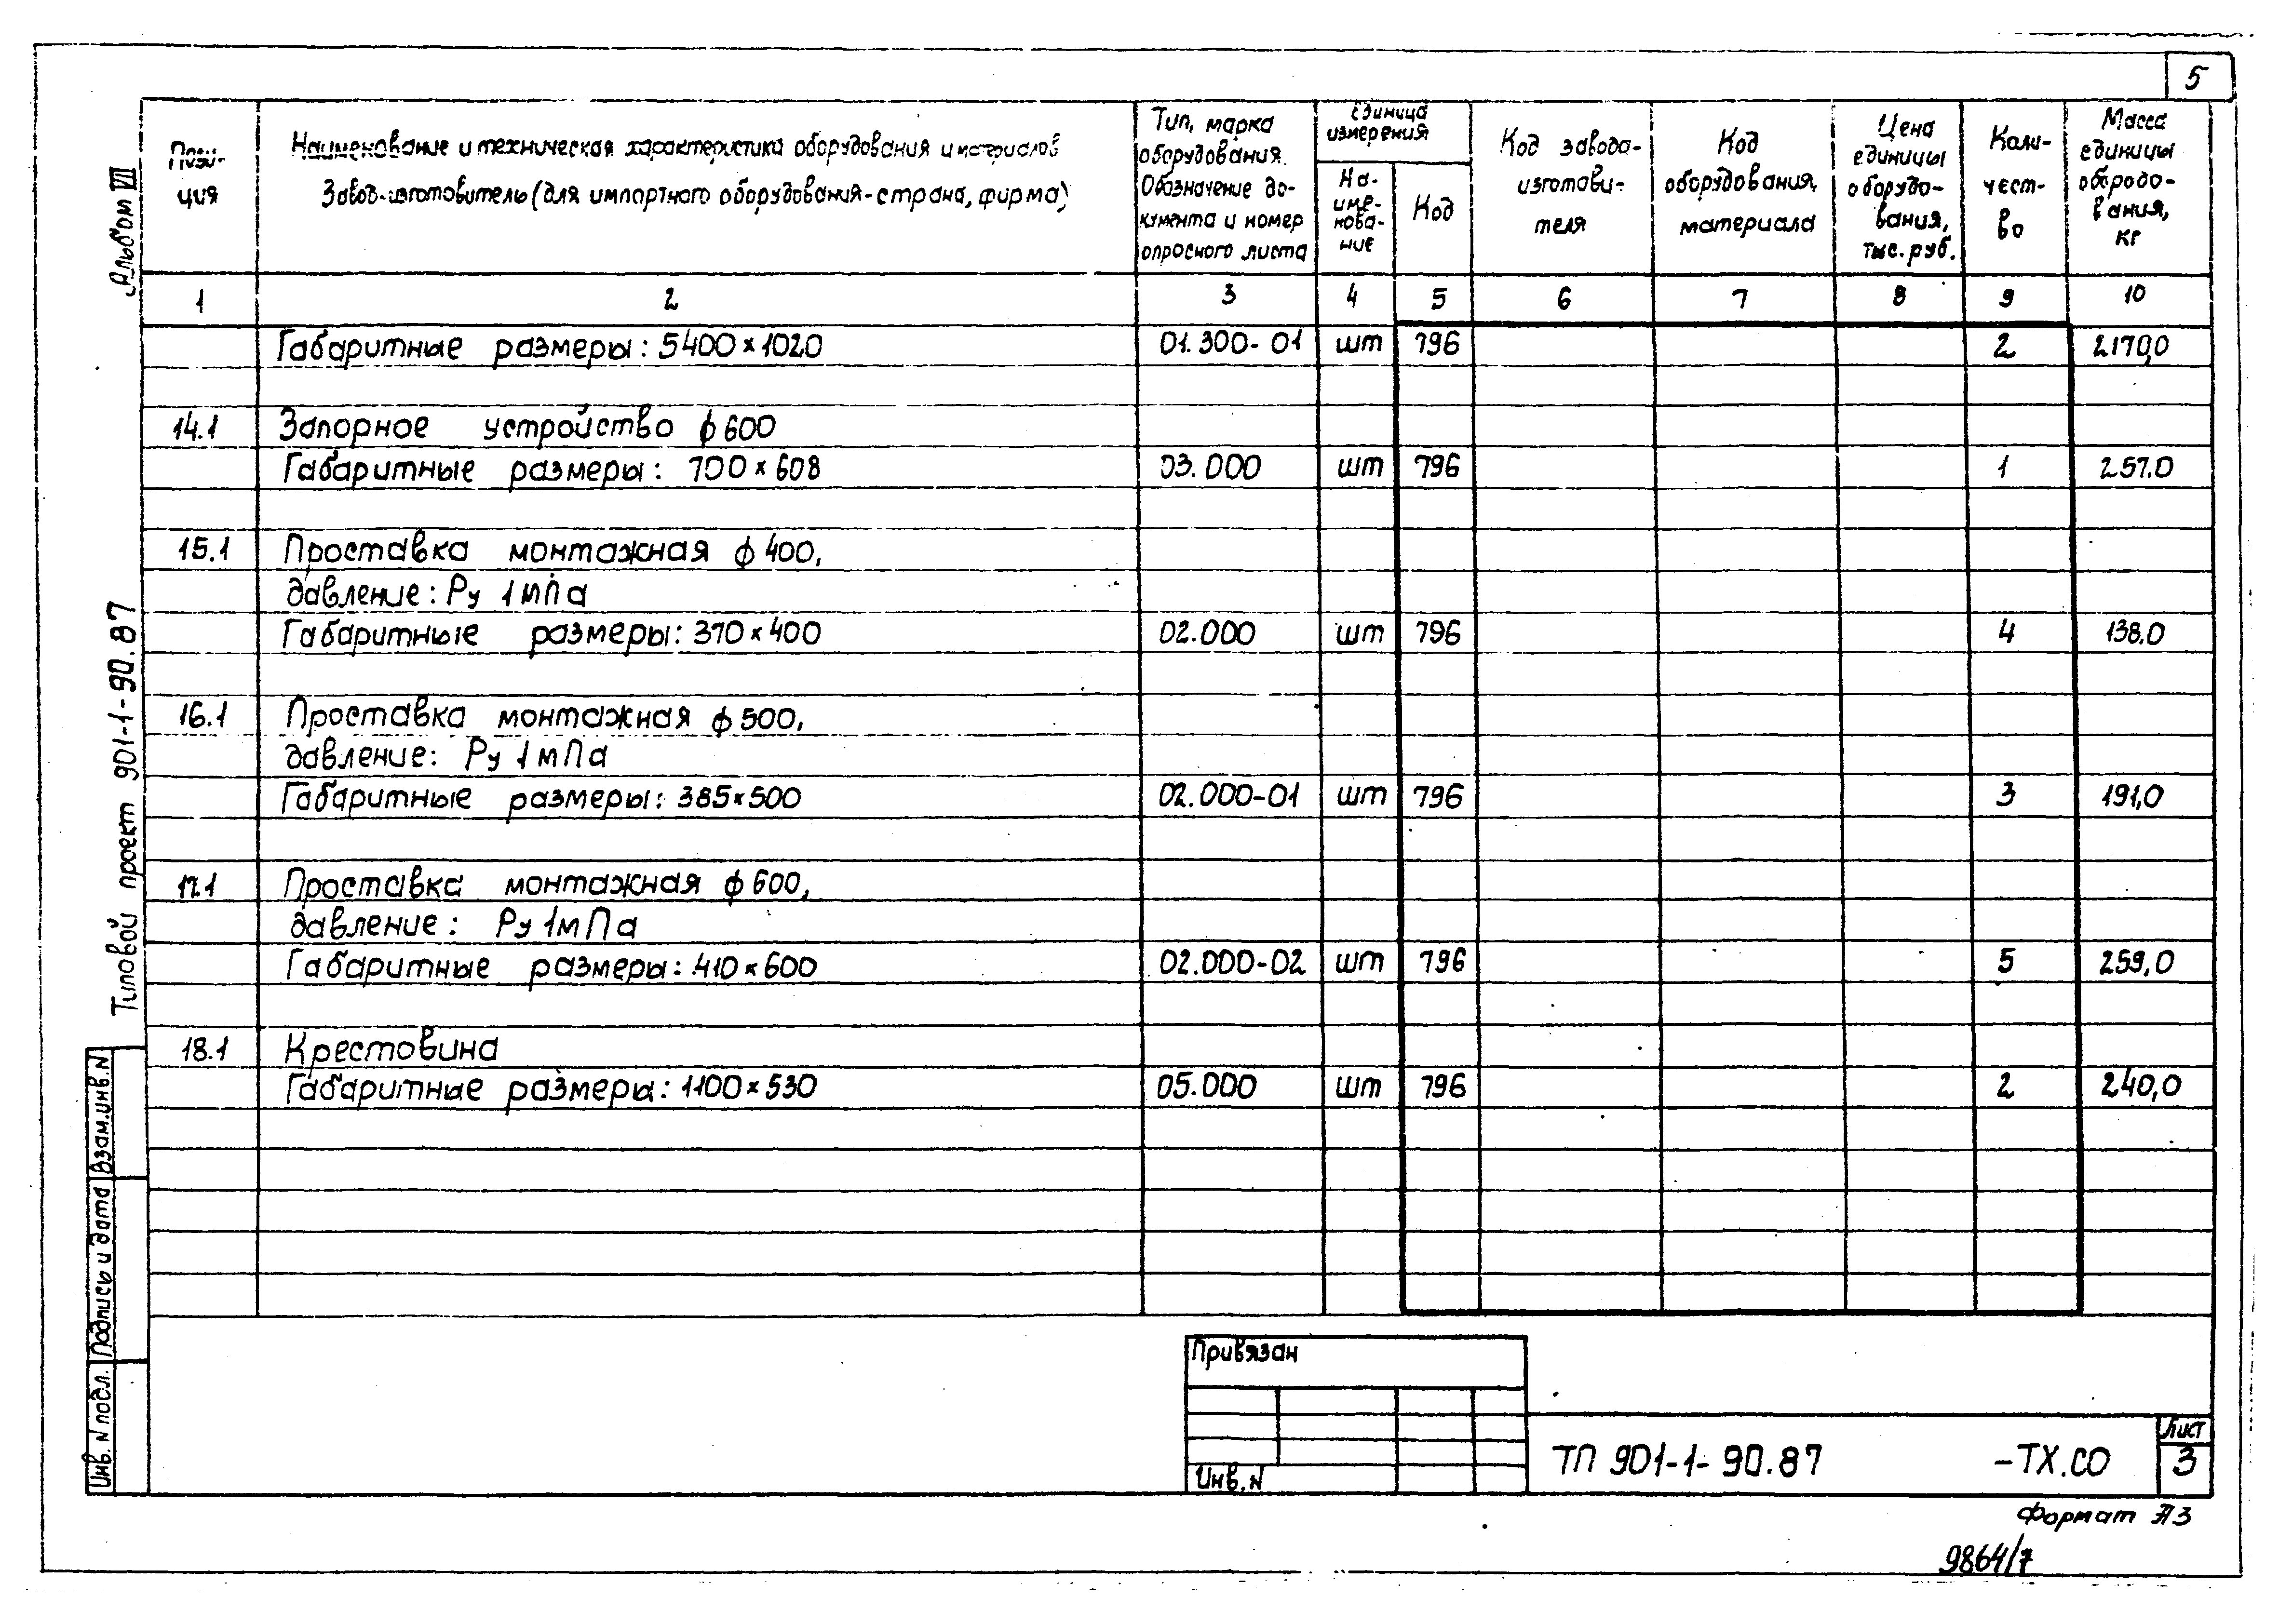 5
Альбом VII
Типовой проект 901-1-90.87
Взам.инв.N
Подпись и дата
Инв. N подл.
Пози-
ция
Наименование и техническая характеристика оборудования и материалов
Завод-изготовитель (для импортного оборудования-страна, фирма)
Тип, марка
оборудования.
Обозначение до-
кумента и номер
опросного листа
Единица
измерения
На-
име-
нова-
ние
Код
Код завода-
изготови-
теля
Код
оборудования,
материала
Цена
единицы
оборудо-
вания,
тыс. руб.
Коли-
чест-
во
Масса
единицы
обородо-
вания,
кг
1 2 3 4 5 6 7 8 9 10
Габаритные размеры: 5400×1020 01.300-01 шт 796 2 2170,0
14.1 Запорное устройство ϕ600
Габаритные размеры: 700×608 03.000 шт 796 1 257.0
15.1 Проставка монтажная ϕ400,
давление: Ру 1мПа
Габаритные размеры: 370×400 02.000 шт 796 4 138.0
16.1 Проставка монтажная ϕ500,
давление: Ру 1мПа
Габаритные размеры: 385×500 02.000-01 шт 796 3 191,0
17.1 Проставка монтажная ϕ600,
давление: Ру 1мПа
Габаритные размеры: 410×600 02.000-02 шт 796 5 259,0
18.1 Крестовина
Габаритные размеры: 1100×530 05.000 шт 796 2 240,0
Привязан
Инв. N
ТП 901-1-90.87 -ТХ.СО
Лист
3
Формат А3
9864/7